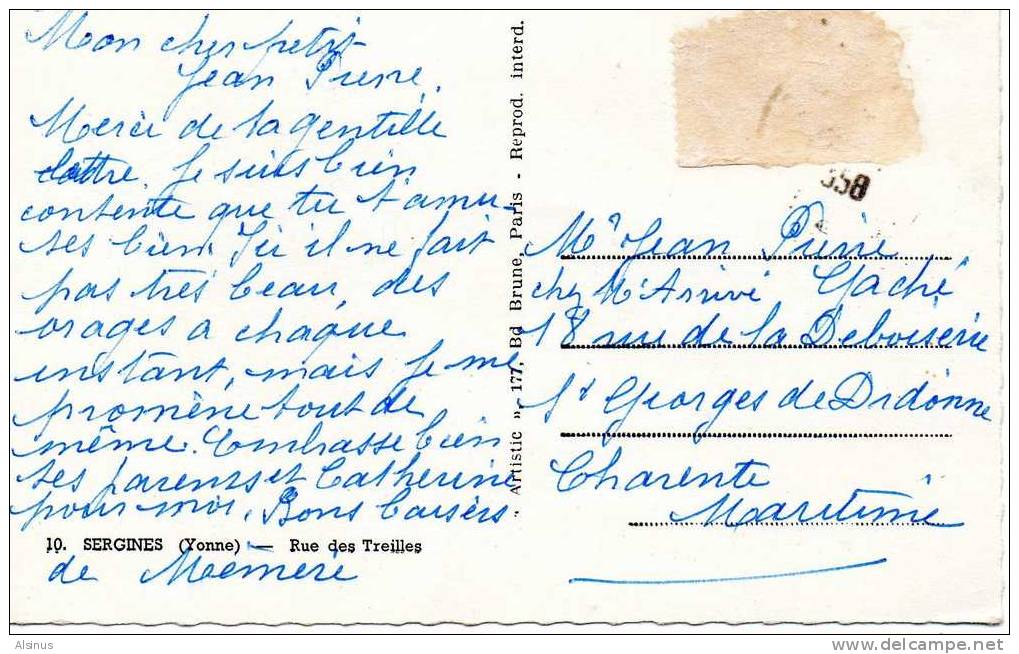 Mon cher petit
Jean Pierre,
Merci de ta gentille
lettre. Je suis bien
contente que tu t'amu-
ses bien. Ici il ne fait
pas très beau, des
orages a chaque
instant, mais je me
promène tout de
même. Embrasse bien
tes parents et Catherine
pour moi. Bons baisers
10. SERGINES (Yonne) — Rue des Treilles
de Mémère
« Artistic », 177, Bd Brune, Paris - Reprod. interd.
358
Mr Jean Pierre
chez Mr Arrivé Gaché
18 rue de la Deboiserie
St Georges de Didonne
Charente
Maritime
Alsinus
www.delcampe.net